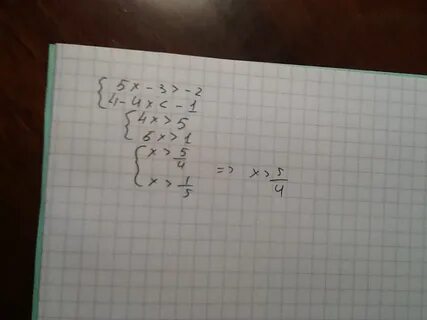 { 5x - 3 > -2
4 - 4x < -1
{ 4x > 5
5x > 1
{ x > 5/4
x > 1/5 => x > 5/4